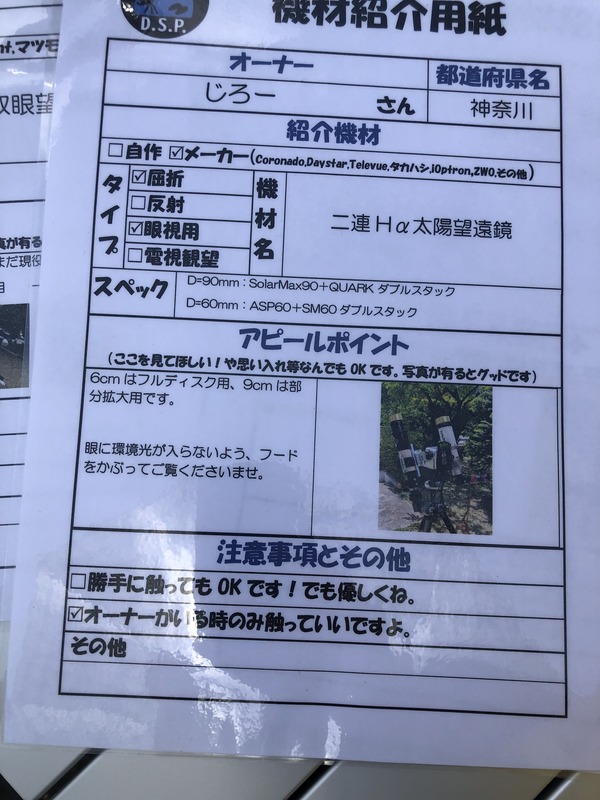 D.S.P.
機材紹介用紙
マツモ
双眼望
オーナー
都道府県名
じろー さん
神奈川
紹介機材
☐自作 ☑メーカー(Coronado,Daystar,Televue,タカハシ,iOptron,ZWO,その他)
タイプ
☑屈折
☐反射
☑眼視用
☐電視観望
機材名
二連Hα太陽望遠鏡
スペック
D=90mm:SolarMax90+QUARK ダブルスタック
D=60mm:ASP60+SM60 ダブルスタック
アピールポイント
(ここを見てほしい!や思い入れ等なんでもOKです。写真が有るとグッドです)
6cmはフルディスク用、9cmは部
分拡大用です。
眼に環境光が入らないよう、フード
をかぶってご覧くださいませ。
注意事項とその他
☐勝手に触ってもOKです!でも優しくね。
☑オーナーがいる時のみ触っていいですよ。
その他
真が有る
まだ現役